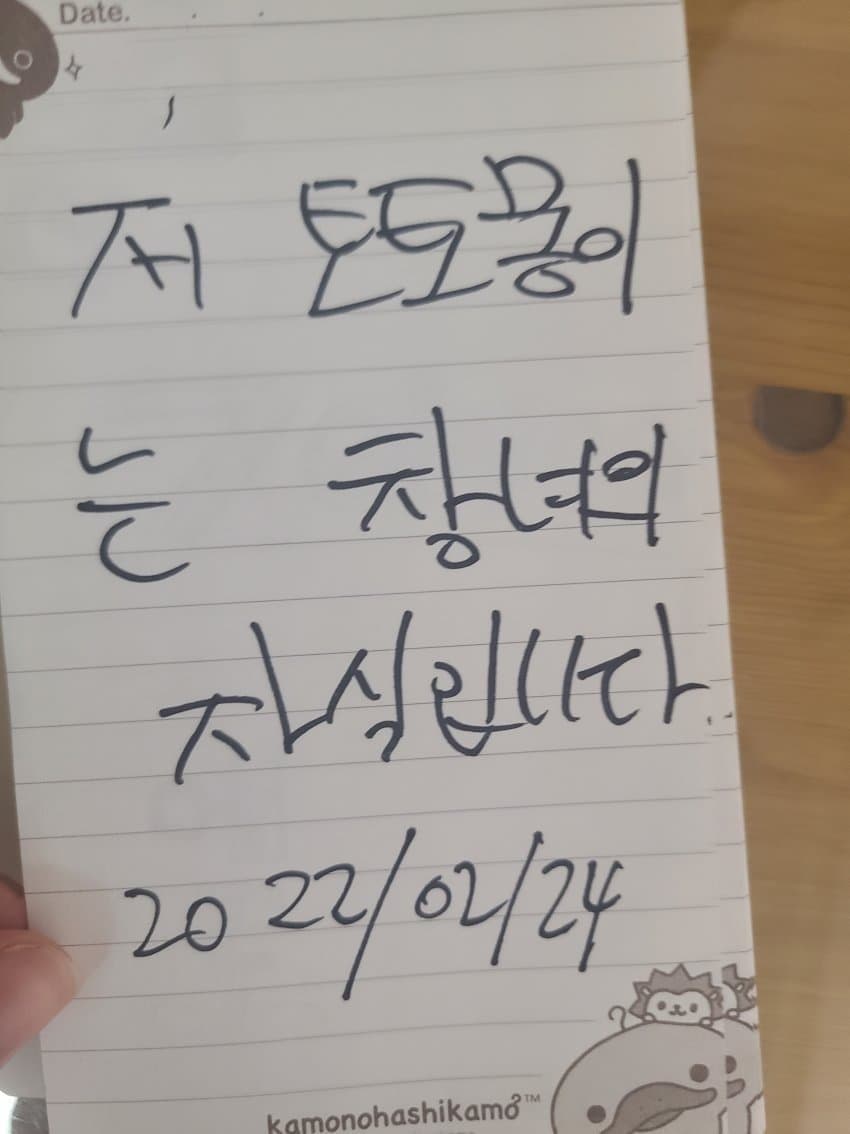 Date.
저 톤토몽이
는 창녀의
자식입니다.
2022/02/24
kamonohashikamo™